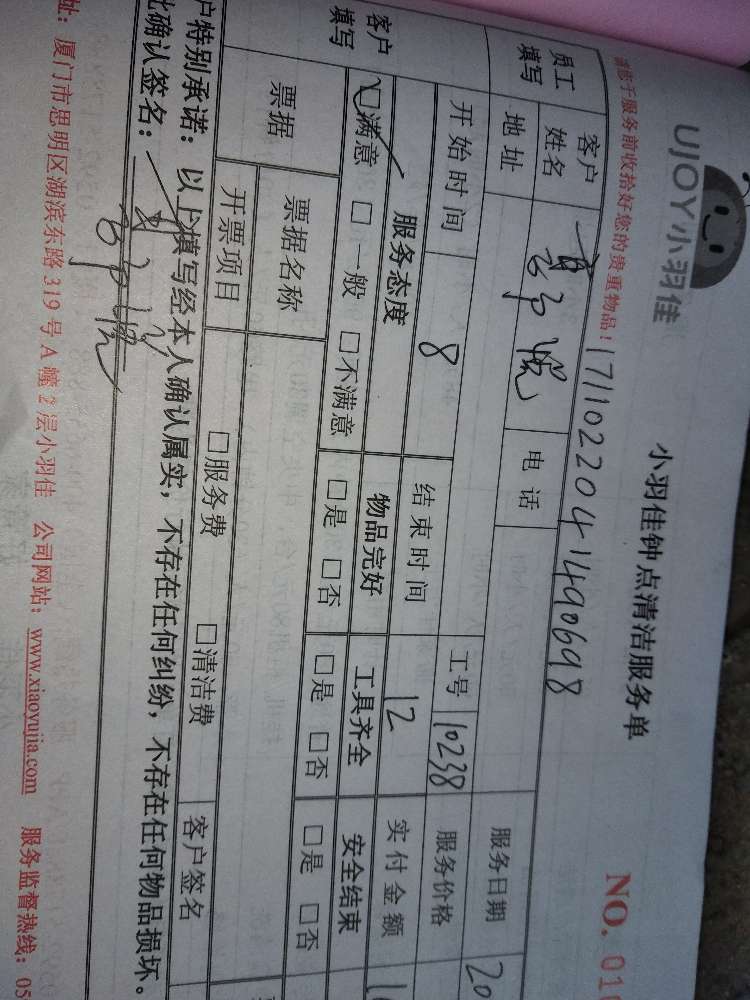 UJOY小羽佳
小羽佳钟点清洁服务单
NO. 01
请您于服务前收拾好您的贵重物品！
1711022041490698
员工填写
客户姓名
电话
服务日期 20
地址
工号 10238
服务价格
客户填写
开始时间 8 结束时间 12 实付金额
服务态度 物品完好 工具齐全 安全结束
☑满意 □一般 □不满意 □是 □否 □是 □否 □是 □否
票据
票据名称
开票项目 □服务费 □清洁费 客户签名
户特别承诺：以上填写经本人确认属实，不存在任何纠纷，不存在任何物品损坏。
此确认签名：
址：厦门市思明区湖滨东路319号A幢2层小羽佳 公司网站：www.xiaoyujia.com 服务监督热线：05